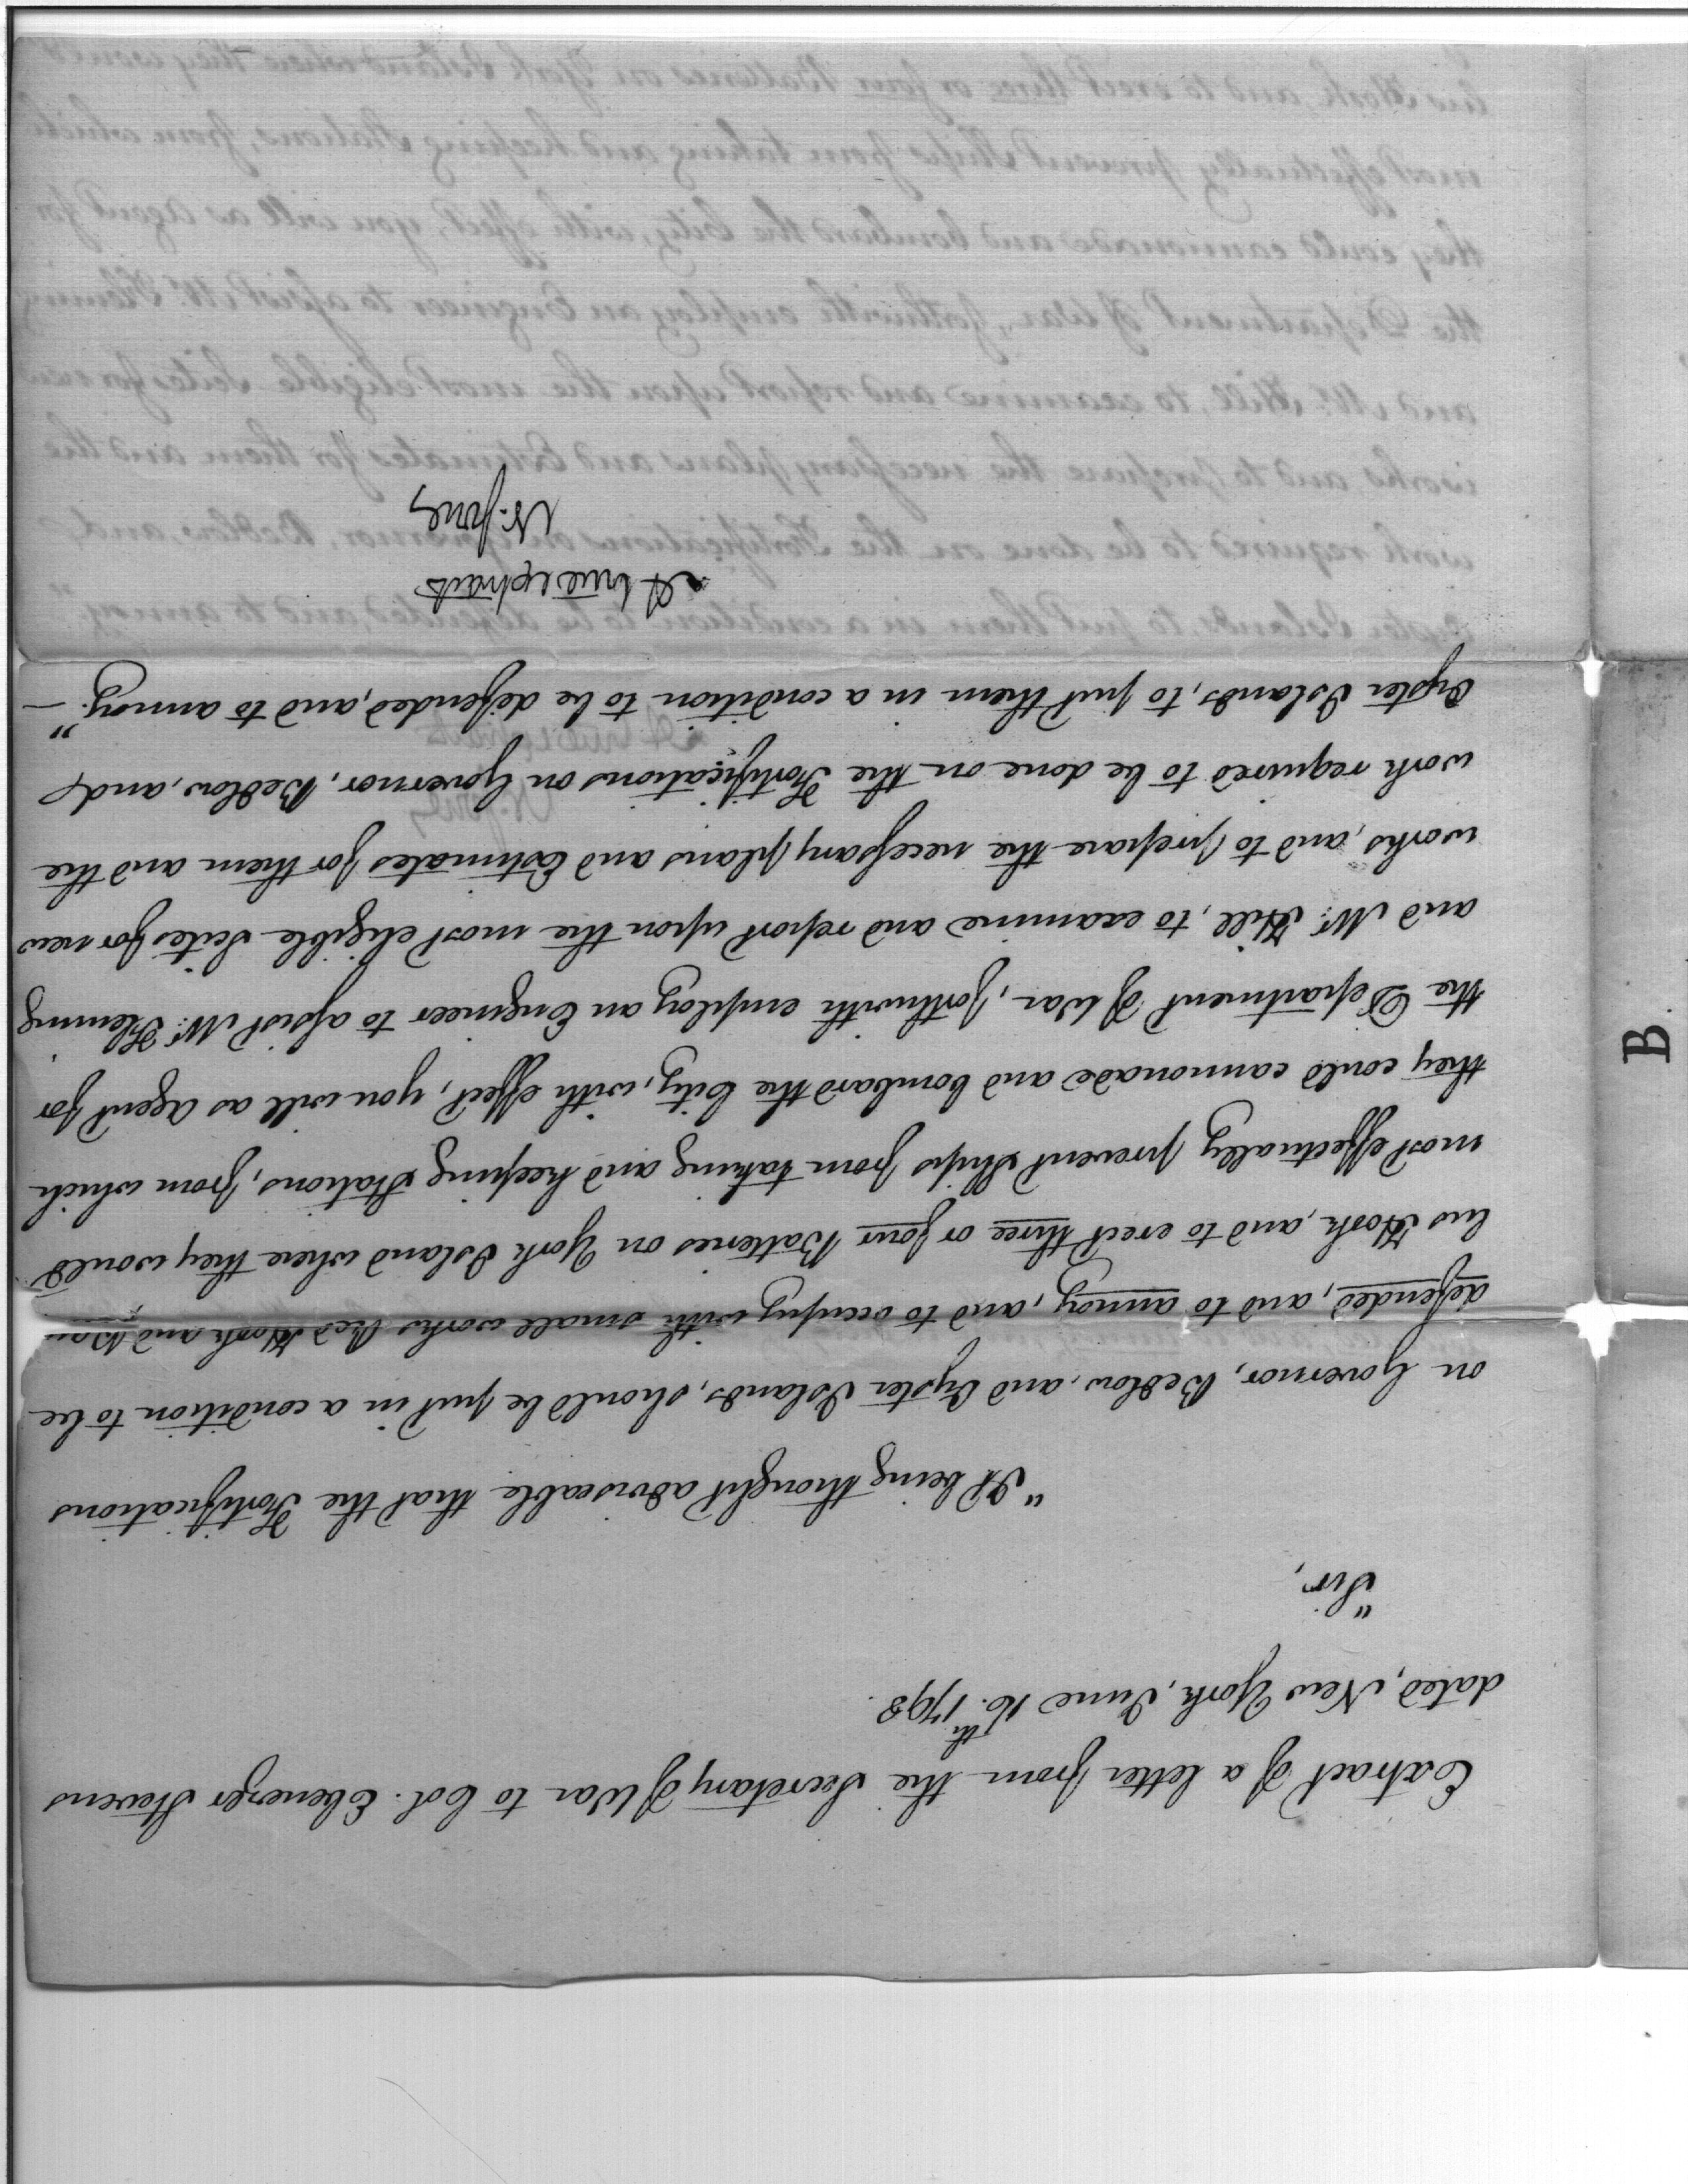 Extract of a letter from the Secretary of War to Col. Ebenezer Stevens
dated, New York, June 16.th 1798.
"Sir,
"It being thought adviseable that the Fortifications
on Governor, Bedlow, and Oyster Islands, should be put in a condition to be
defended, and to annoy, and to occupy with small works Red Hook and
his Hook, and to erect three or four Batteries on York Island where they would
most effectually prevent Ships from taking and keeping Stations, from which
they could cannonade and bombard the City, with effect, you will as agent for
the Department of War, forthwith employ an Engineer to assist Mr. Fleming
and Mr. Hill, to examine and report upon the most eligible Scites for new
works, and to prepare the necessary plans and Estimates for them and the
work required to be done on the Fortifications on Governor, Bedlow, and
Oyster Islands, to put them in a condition to be defended, and to annoy." —
A true extract
N. Jones
B.